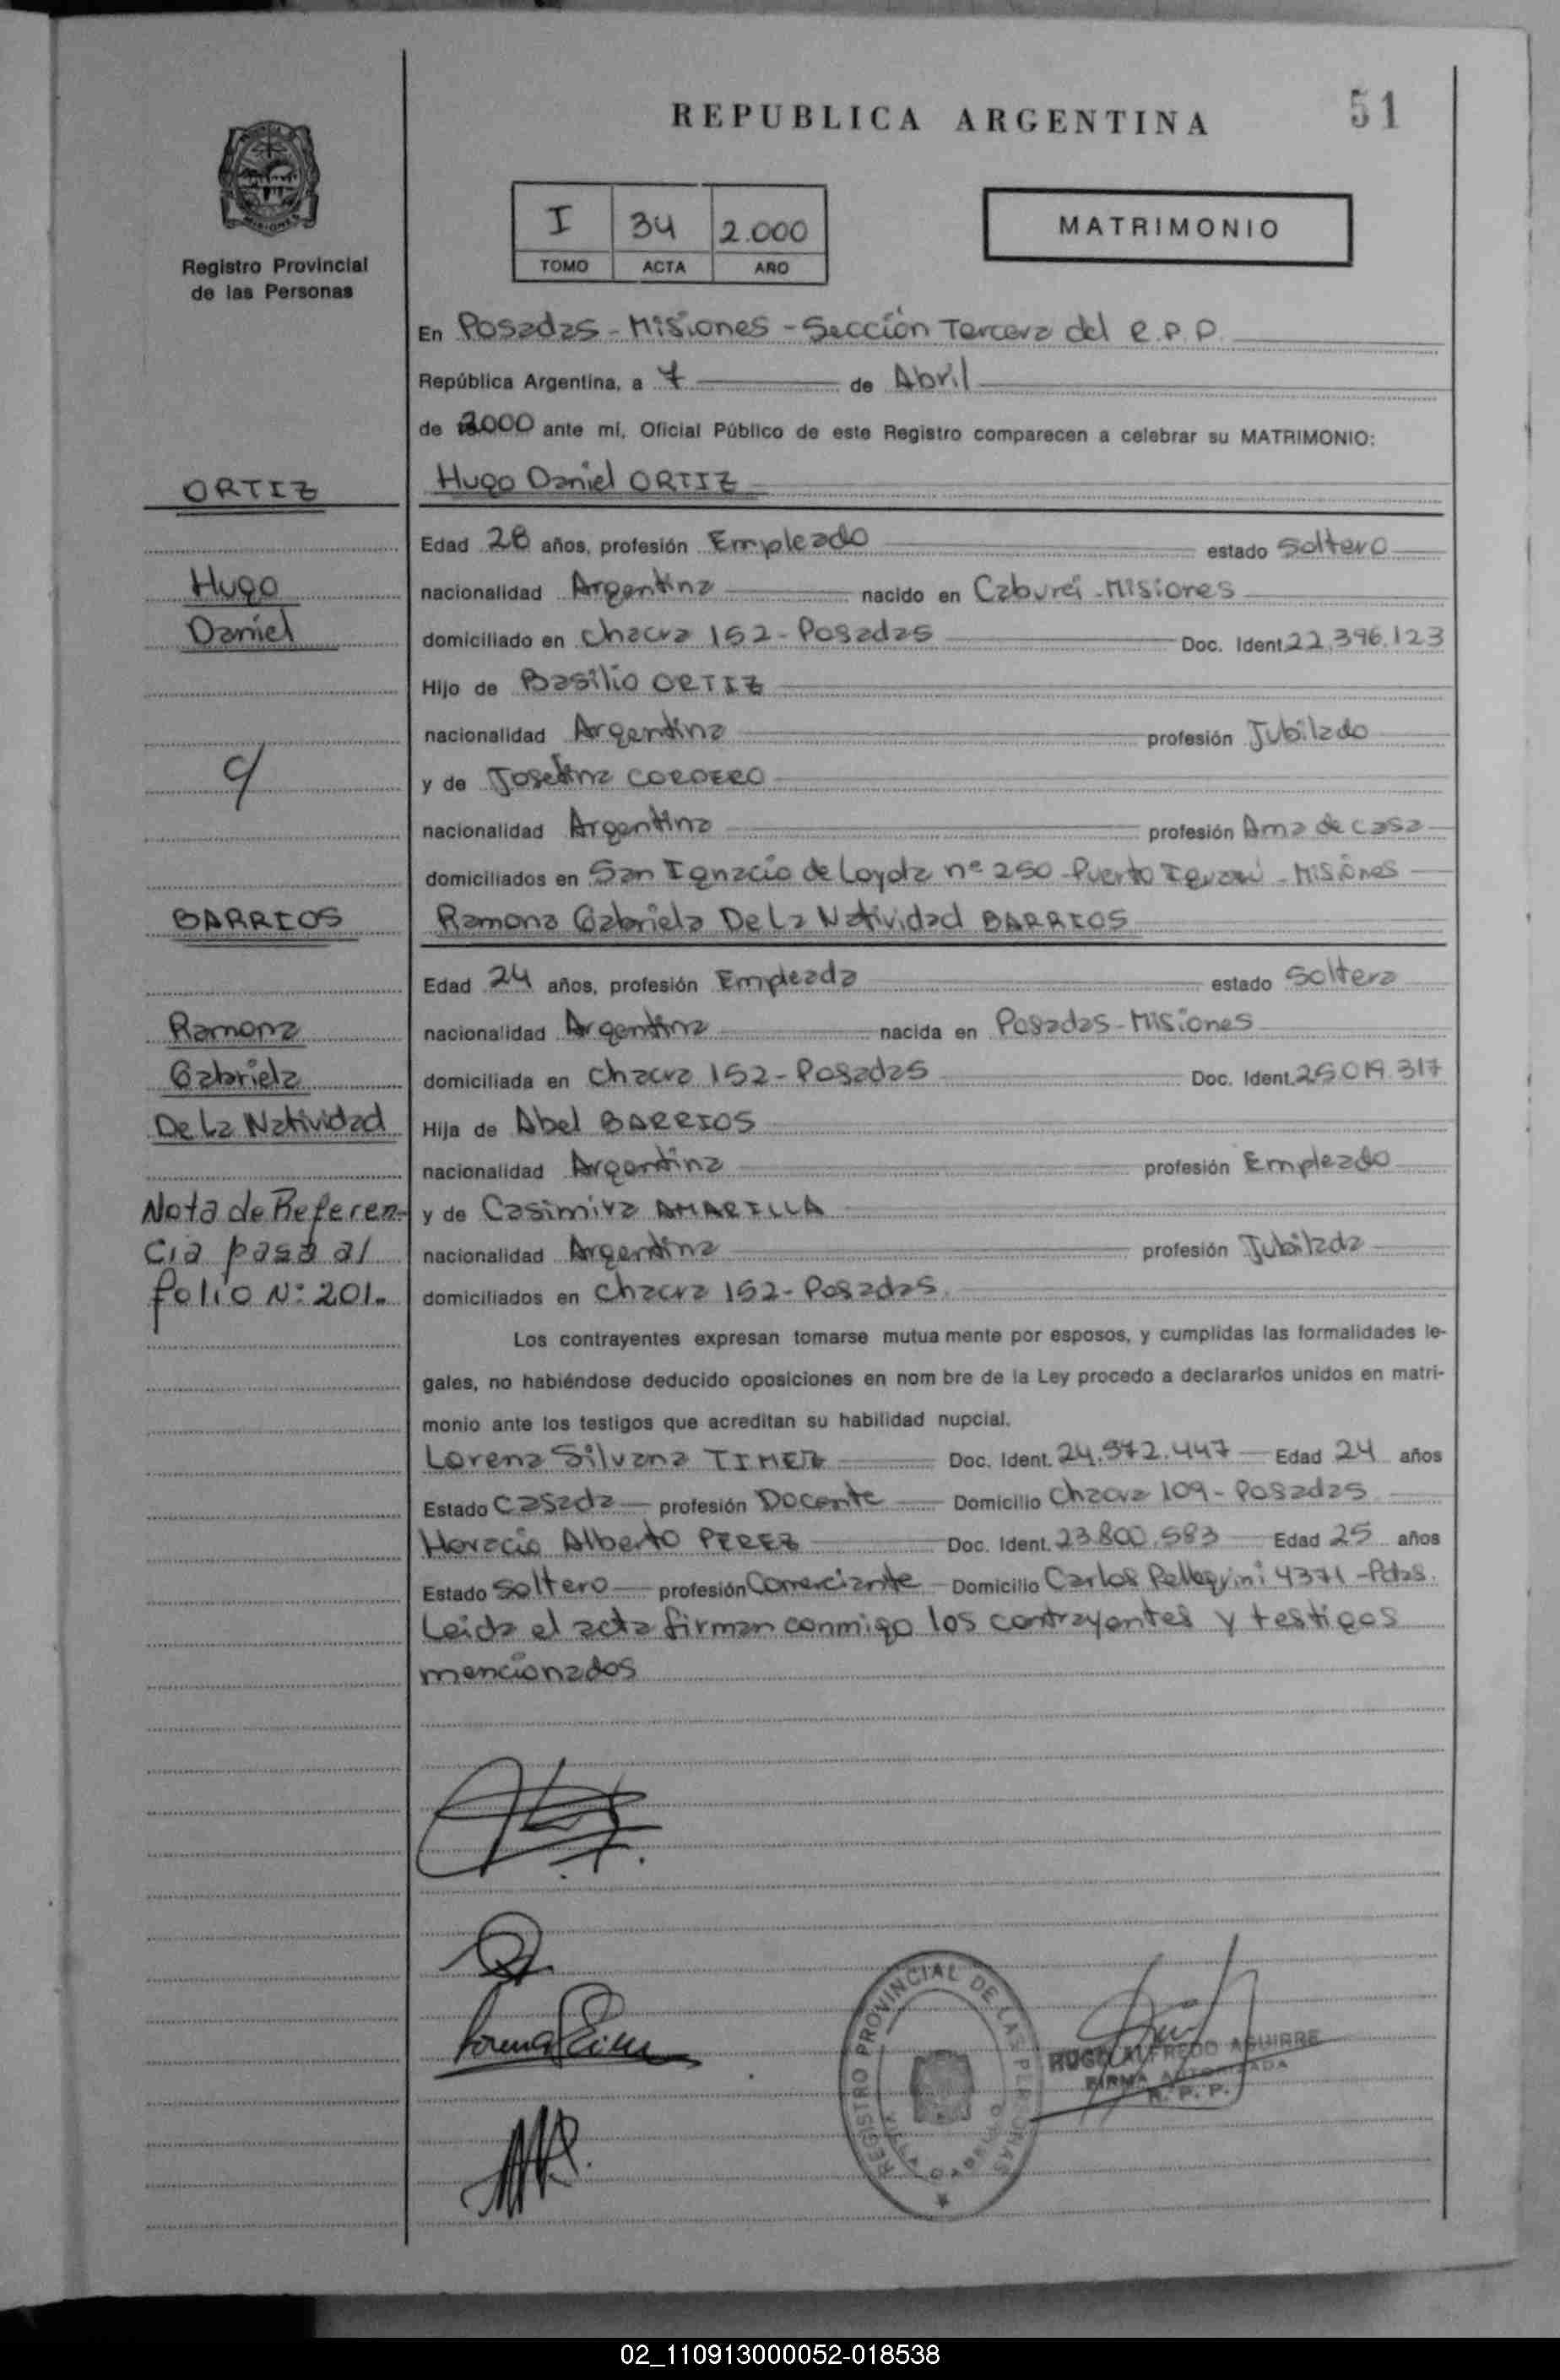 REPUBLICA ARGENTINA
51
Registro Provincial
de las Personas
I 34 2.000
TOMO ACTA AÑO
MATRIMONIO
En Posadas - Misiones - Sección Tercera del R.P.P.
República Argentina, a 7 de Abril
de 2000 ante mí, Oficial Público de este Registro comparecen a celebrar su MATRIMONIO:
ORTIZ
Hugo Daniel ORTIZ
Edad 28 años, profesión Empleado estado Soltero
Hugo
nacionalidad Argentina nacido en Caburei - Misiones
Daniel
domiciliado en Chacra 152 - Posadas Doc. Ident. 22.396.123
Hijo de Basilio ORTIZ
nacionalidad Argentina profesión Jubilado
c/
y de Josefina CORDERO
nacionalidad Argentina profesión Ama de casa
domiciliados en San Ignacio de Loyola nº 250 - Puerto Iguazú - Misiones
BARRIOS
Ramona Gabriela De La Natividad BARRIOS
Edad 24 años, profesión Empleada estado Soltera
Ramona
nacionalidad Argentina nacida en Posadas - Misiones
Gabriela
domiciliada en Chacra 152 - Posadas Doc. Ident. 25.019.317
De La Natividad
Hija de Abel BARRIOS
nacionalidad Argentina profesión Empleado
Nota de Referen-
y de Casimira AMARILLA
cia pasa al
nacionalidad Argentina profesión Jubilada
folio Nº 201.
domiciliados en Chacra 152 - Posadas.
Los contrayentes expresan tomarse mutua mente por esposos, y cumplidas las formalidades le-
gales, no habiéndose deducido oposiciones en nom bre de la Ley procedo a declararlos unidos en matri-
monio ante los testigos que acreditan su habilidad nupcial.
Lorena Silvana Doc. Ident. 24.572.447 Edad 24 años
Estado Casada profesión Docente Domicilio Chacra 109 - Posadas
Horacio Alberto PEREZ Doc. Ident. 23.800.583 Edad 25 años
Estado Soltero profesión Comerciante Domicilio Carlos Pellegrini 4371 - Pdas.
Leida el acta firman conmigo los contrayentes y testigos
mencionados
REGISTRO PROVINCIAL DE LAS PERSONAS
HUGO ALFREDO AGUIRRE
FIRMA AUTORIZADA
R. P. P.
02_110913000052-018538